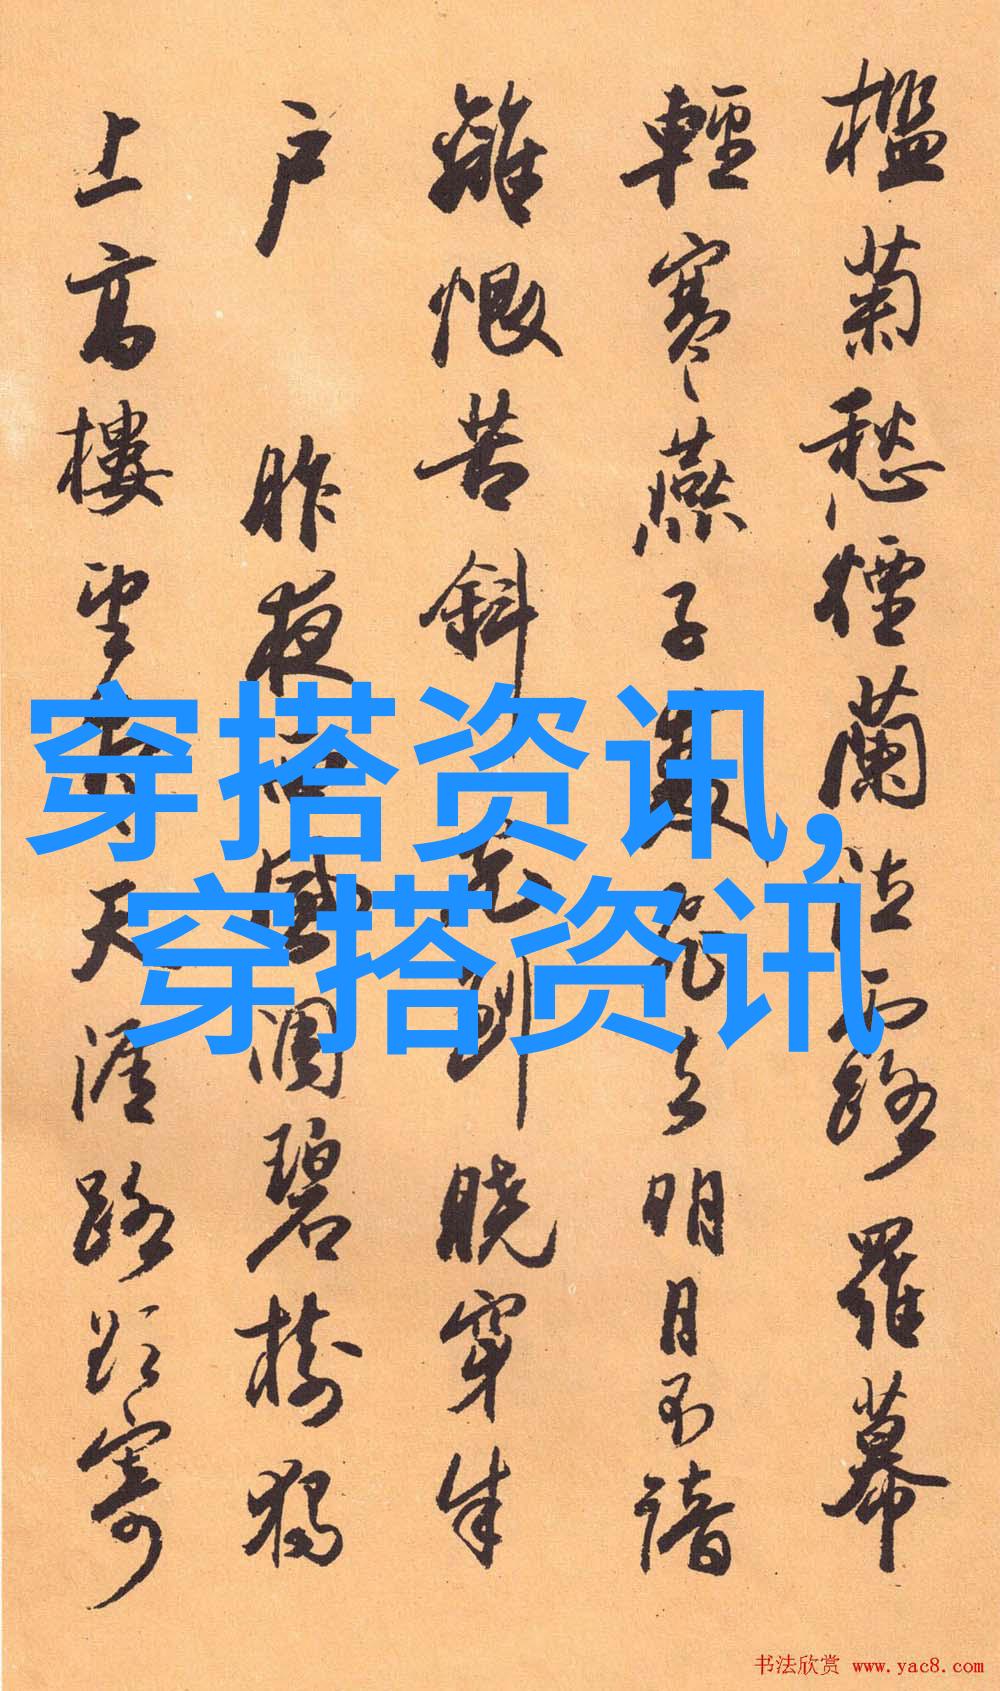 檻菊愁煙蘭泣露羅幕
輕寒燕子雙飛去明月不諳
離恨苦斜光到曉穿朱
户 昨夜西風凋碧樹獨
上高樓望盡天涯路欲寄
穿搭资讯,
穿搭资讯
书法欣赏 www.yac8.com